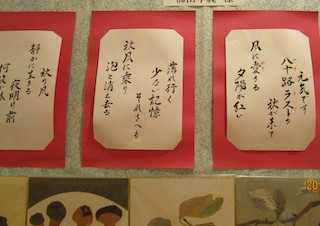 元気です
八十路ラストの
秋が来て
夕陽が紅い
薄れ行く
少ない記憶
それさへも
秋風に乗り
泡と消え去る
秋の風
静かに生きる
夜明け前
何故か
20